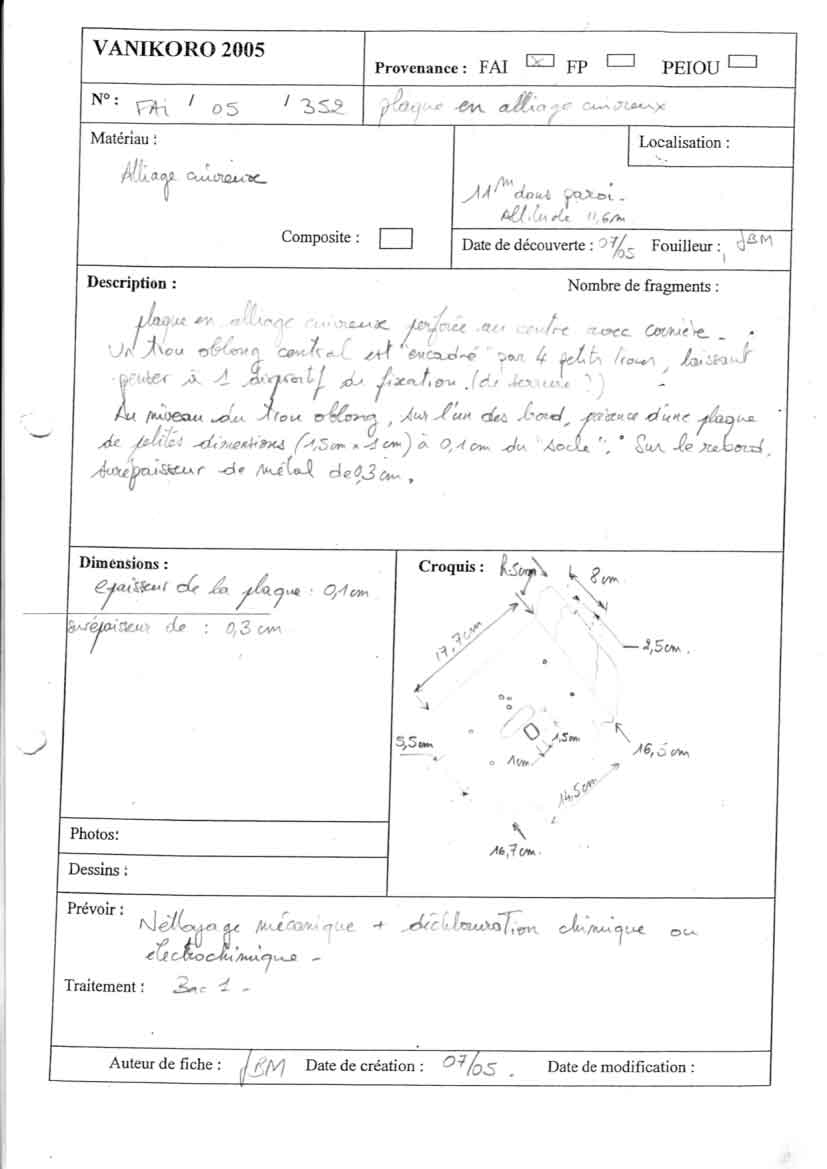 VANIKORO 2005
Provenance : FAI FP PEIOU
N° : FAi / 05 / 352
plaque en alliage cuivreux
Matériau :
Alliage cuivreux
Composite :
Localisation :
11m dans paroi.
Altitude 11,6m
Date de découverte : 07/05 Fouilleur : JBM
Description :
Nombre de fragments :
plaque en alliage cuivreux perforée au centre avec cornière.
Un trou oblong central est "encadré" par 4 petits trous, laissant
penser à 1 dispositif de fixation. (de serrure ?)
Au niveau du trou oblong, sur l'un des bord, présence d'une plaque
de petites dimentions (1,5cm x 1cm) à 0,1cm du "socle". Sur le rebord,
surépaisseur de métal de 0,3cm.
Dimensions :
epaisseur de la plaque : 0,1cm
surépaisseur de : 0,3 cm
Croquis :
8cm
17,7cm
2,5cm.
5,5cm
1,5cm
1cm
14,5cm
16,5cm
16,7cm.
Photos:
Dessins :
Prévoir :
Néttoyage mécanique + déchlouration chimique ou
electrochimique -
Traitement :
Bac 1 -
Auteur de fiche : JBM Date de création : 07/05 . Date de modification :